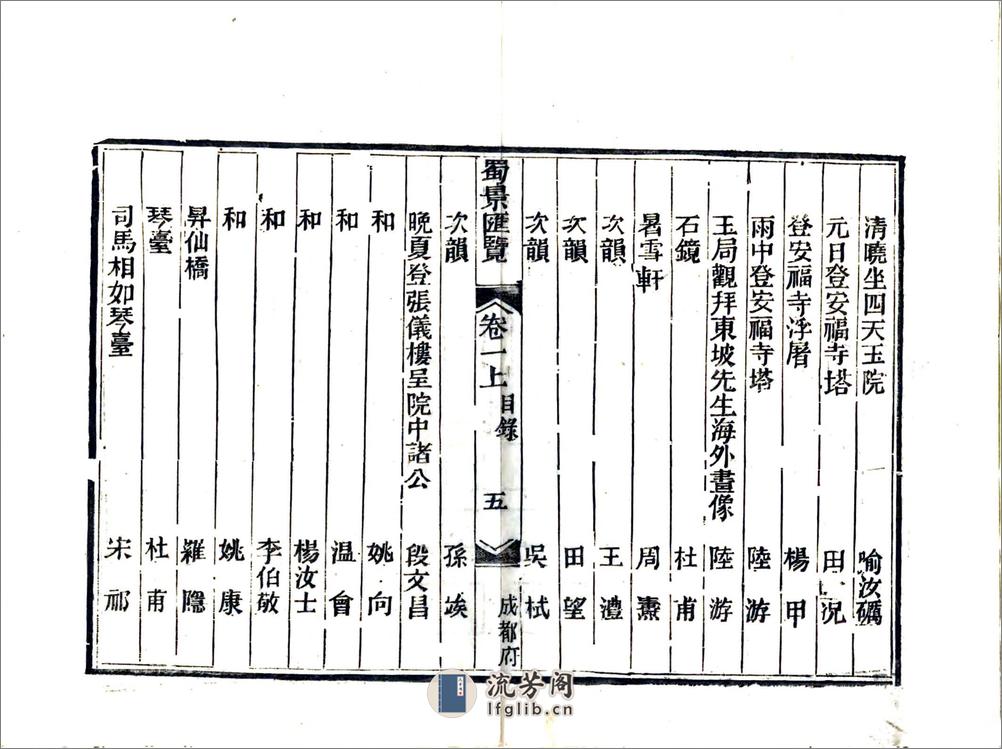 清曉坐四天王院 喻汝礪
元日登安福寺塔 田況
登安福寺浮屠 楊甲
雨中登安福寺塔 陸游
玉局觀拜東坡先生海外畫像 陸游
石鏡 杜甫
暑雪軒 周燾
次韻 王澧
次韻 田望
次韻 吳栻
蜀景匯覽 卷一上 目錄 五 成都府
次韻 孫竢
晚夏登張儀樓呈院中諸公 段文昌
和 姚向
和 溫會
和 楊汝士
和 李伯敬
和 姚康
昇仙橋 羅隱
琴臺 杜甫
司馬相如琴臺 宋祁
流芳阁
lfglib.cn